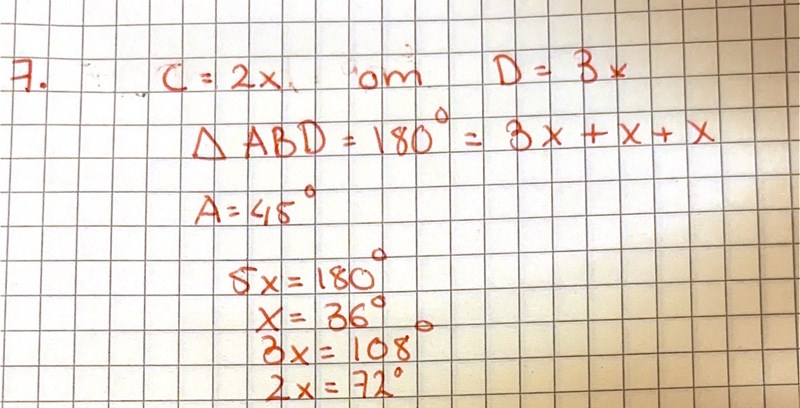 7. C = 2x om D = 3x
△ ABD = 180° = 3x + x + x
A = 45°
5x = 180°
x = 36°
3x = 108°
2x = 72°